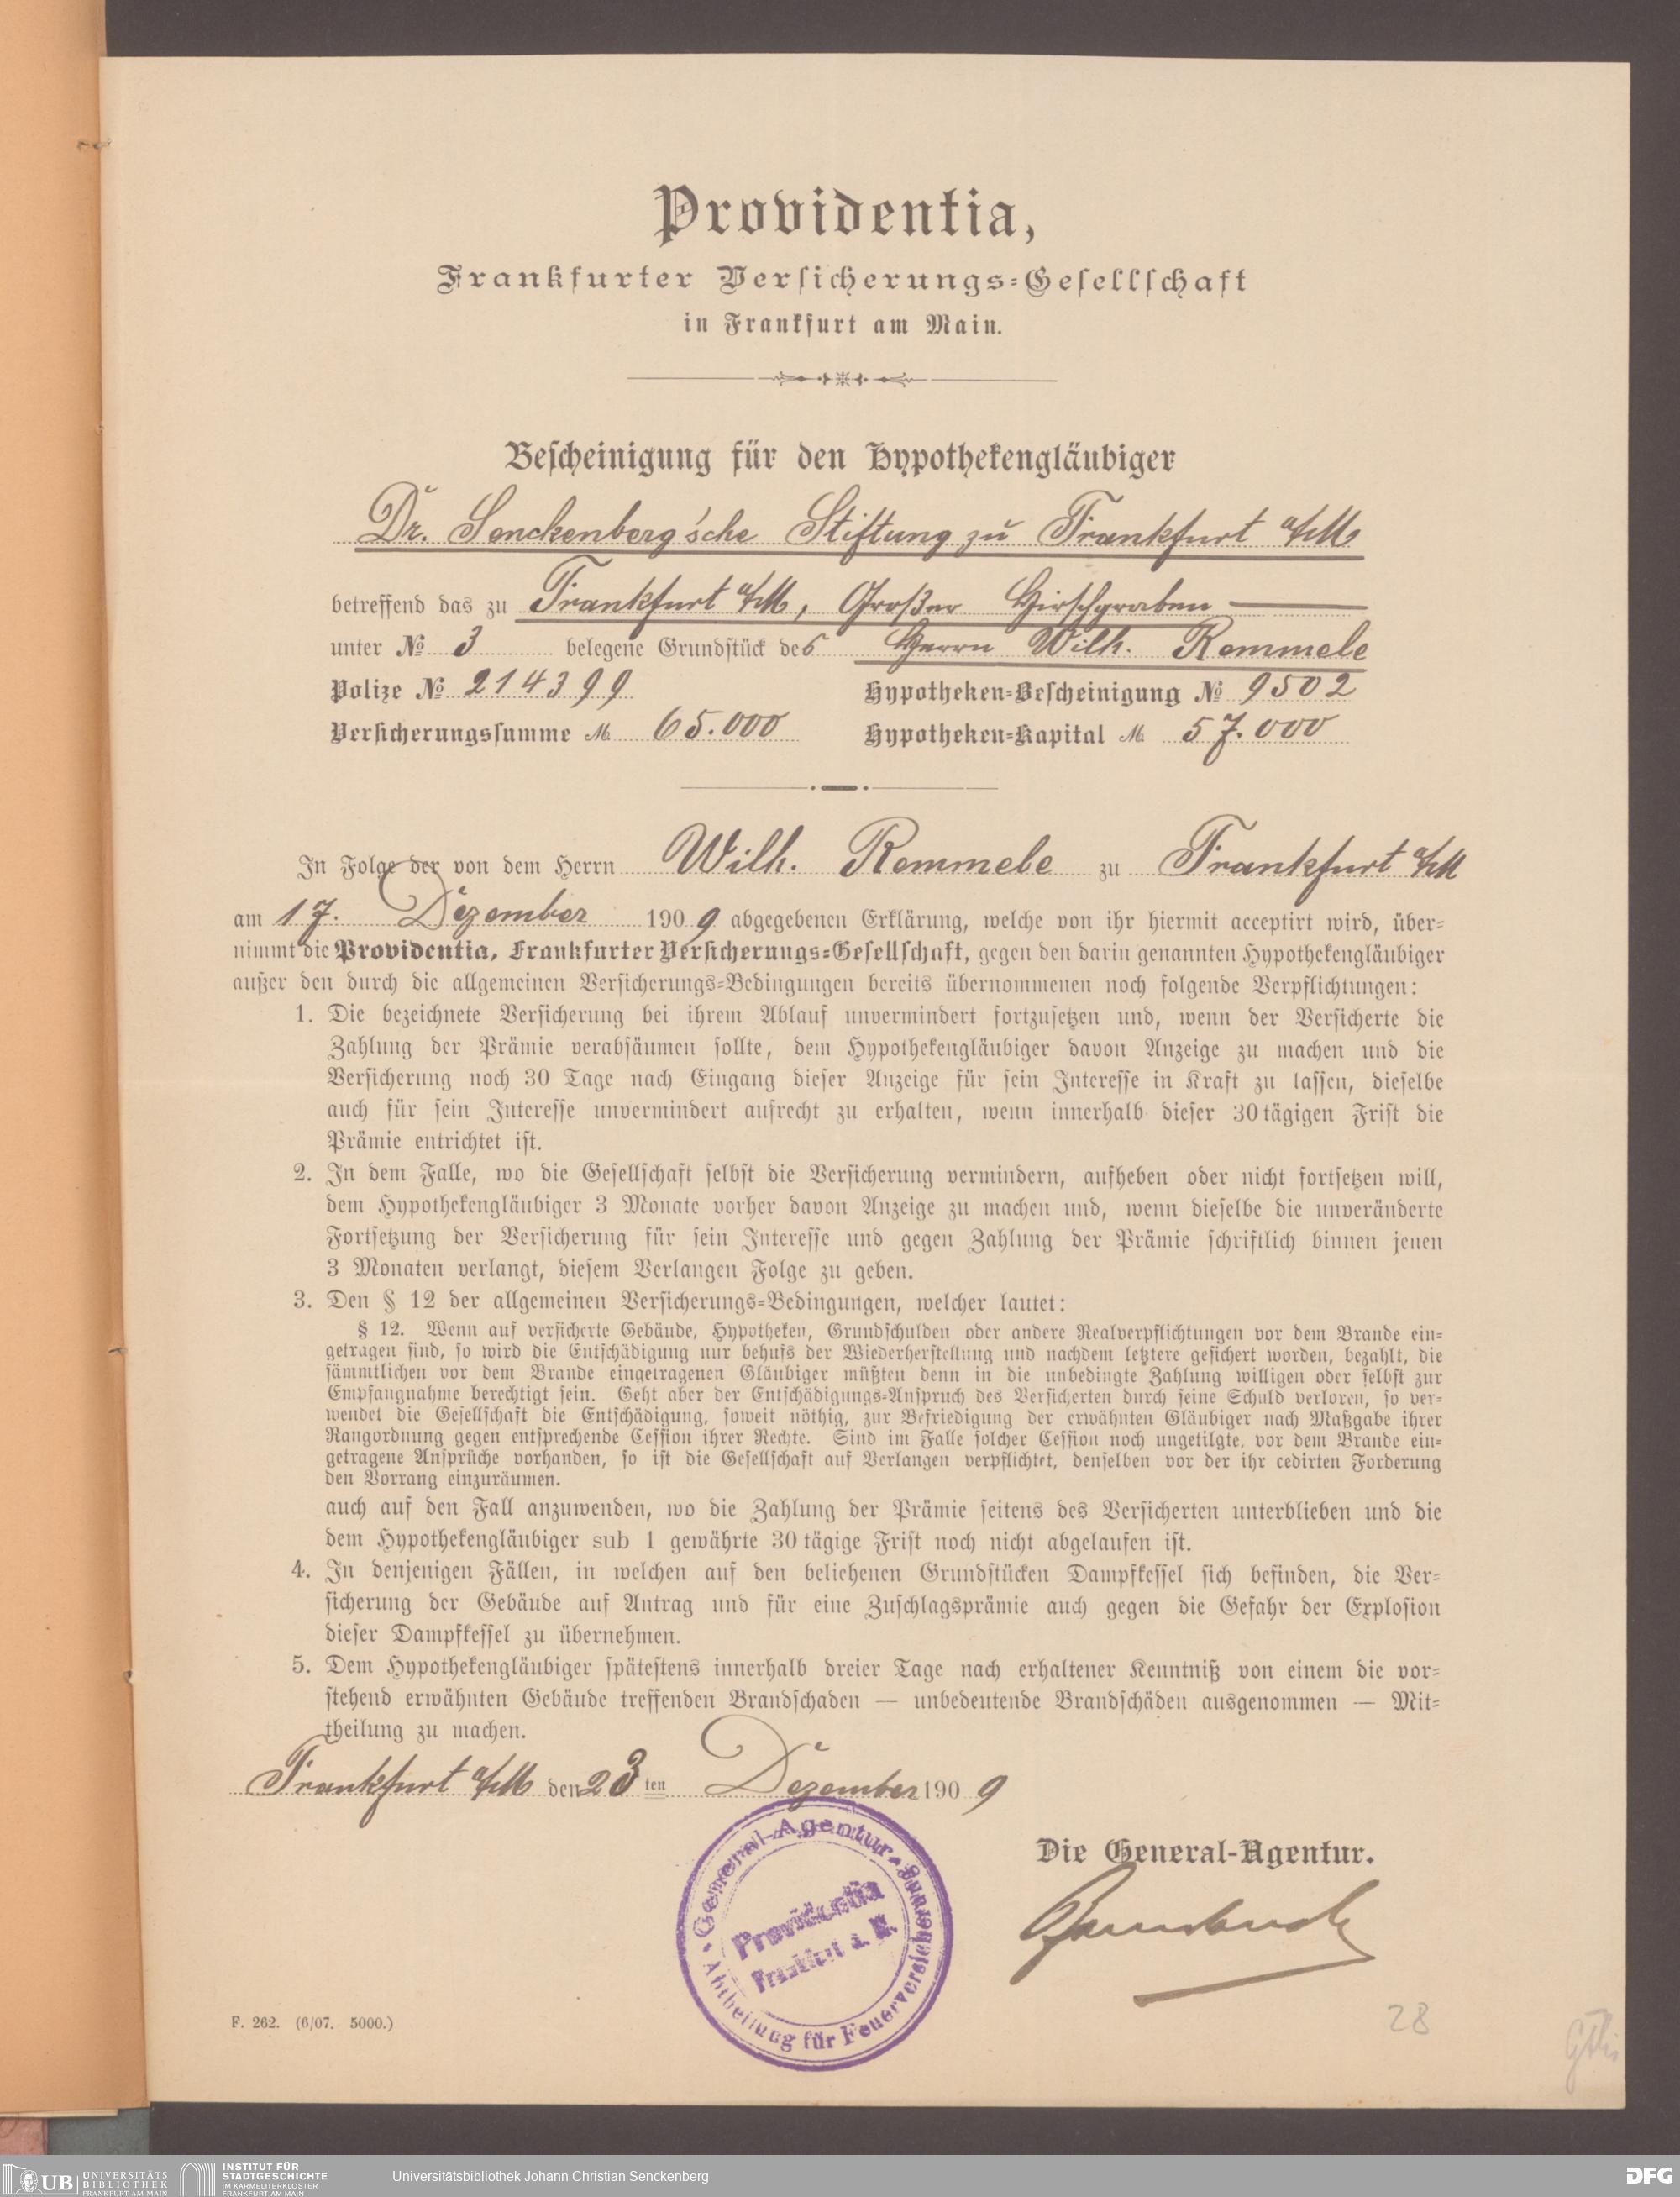 Providentia,
Frankfurter Versicherungs-Gesellschaft
in Frankfurt am Main.
Bescheinigung für den Hypothekengläubiger
Dr. Senckenberg'sche Stiftung zu Frankfurt a/M
betreffend das zu Frankfurt a/M, Großer Hirschgraben
unter No 3 belegene Grundstück des Herrn Wilh. Remmele
Polize No 214399 Hypotheken-Bescheinigung No 9502
Versicherungssumme M. 65.000 Hypotheken-Kapital M. 57.000
In Folge der von dem Herrn Wilh. Remmele zu Frankfurt a/M
am 17. Dezember 1909 abgegebenen Erklärung, welche von ihr hiermit acceptirt wird, über-
nimmt die Providentia, Frankfurter Versicherungs-Gesellschaft, gegen den darin genannten Hypothekengläubiger
außer den durch die allgemeinen Versicherungs-Bedingungen bereits übernommenen noch folgende Verpflichtungen:
1. Die bezeichnete Versicherung bei ihrem Ablauf unvermindert fortzusetzen und, wenn der Versicherte die
Zahlung der Prämie verabsäumen sollte, dem Hypothekengläubiger davon Anzeige zu machen und die
Versicherung noch 30 Tage nach Eingang dieser Anzeige für sein Interesse in Kraft zu lassen, dieselbe
auch für sein Interesse unvermindert aufrecht zu erhalten, wenn innerhalb dieser 30 tägigen Frist die
Prämie entrichtet ist.
2. In dem Falle, wo die Gesellschaft selbst die Versicherung vermindern, aufheben oder nicht fortsetzen will,
dem Hypothekengläubiger 3 Monate vorher davon Anzeige zu machen und, wenn dieselbe die unveränderte
Fortsetzung der Versicherung für sein Interesse und gegen Zahlung der Prämie schriftlich binnen jenen
3 Monaten verlangt, diesem Verlangen Folge zu geben.
3. Den § 12 der allgemeinen Versicherungs-Bedingungen, welcher lautet:
§ 12. Wenn auf versicherte Gebäude, Hypotheken, Grundschulden oder andere Realverpflichtungen vor dem Brande ein-
getragen sind, so wird die Entschädigung nur behufs der Wiederherstellung und nachdem letztere gesichert worden, bezahlt, die
sämmtlichen vor dem Brande eingetragenen Gläubiger müßten denn in die unbedingte Zahlung willigen oder selbst zur
Empfangnahme berechtigt sein. Geht aber der Entschädigungs-Anspruch des Versicherten durch seine Schuld verloren, so ver-
wendet die Gesellschaft die Entschädigung, soweit nöthig, zur Befriedigung der erwähnten Gläubiger nach Maßgabe ihrer
Rangordnung gegen entsprechende Cession ihrer Rechte. Sind im Falle solcher Cession noch ungetilgte, vor dem Brande ein-
getragene Ansprüche vorhanden, so ist die Gesellschaft auf Verlangen verpflichtet, denselben vor der ihr cedirten Forderung
den Vorrang einzuräumen.
auch auf den Fall anzuwenden, wo die Zahlung der Prämie seitens des Versicherten unterblieben und die
dem Hypothekengläubiger sub 1 gewährte 30 tägige Frist noch nicht abgelaufen ist.
4. In denjenigen Fällen, in welchen auf den beliehenen Grundstücken Dampfkessel sich befinden, die Ver-
sicherung der Gebäude auf Antrag und für eine Zuschlagsprämie auch gegen die Gefahr der Explosion
dieser Dampfkessel zu übernehmen.
5. Dem Hypothekengläubiger spätestens innerhalb dreier Tage nach erhaltener Kenntniß von einem die vor-
stehend erwähnten Gebäude treffenden Brandschaden — unbedeutende Brandschäden ausgenommen — Mit-
theilung zu machen.
Frankfurt a/M den 23ten Dezember 1909
Die General-Agentur.
General-Agentur
Providentia
Frankfurt a. M.
Abtheilung für Feuerversicherung
F. 262. (6/07. 5000.)
28
UB UNIVERSITÄTS
BIBLIOTHEK
FRANKFURT AM MAIN
INSTITUT FÜR
STADTGESCHICHTE
IM KARMELITERKLOSTER
FRANKFURT AM MAIN
Universitätsbibliothek Johann Christian Senckenberg
DFG